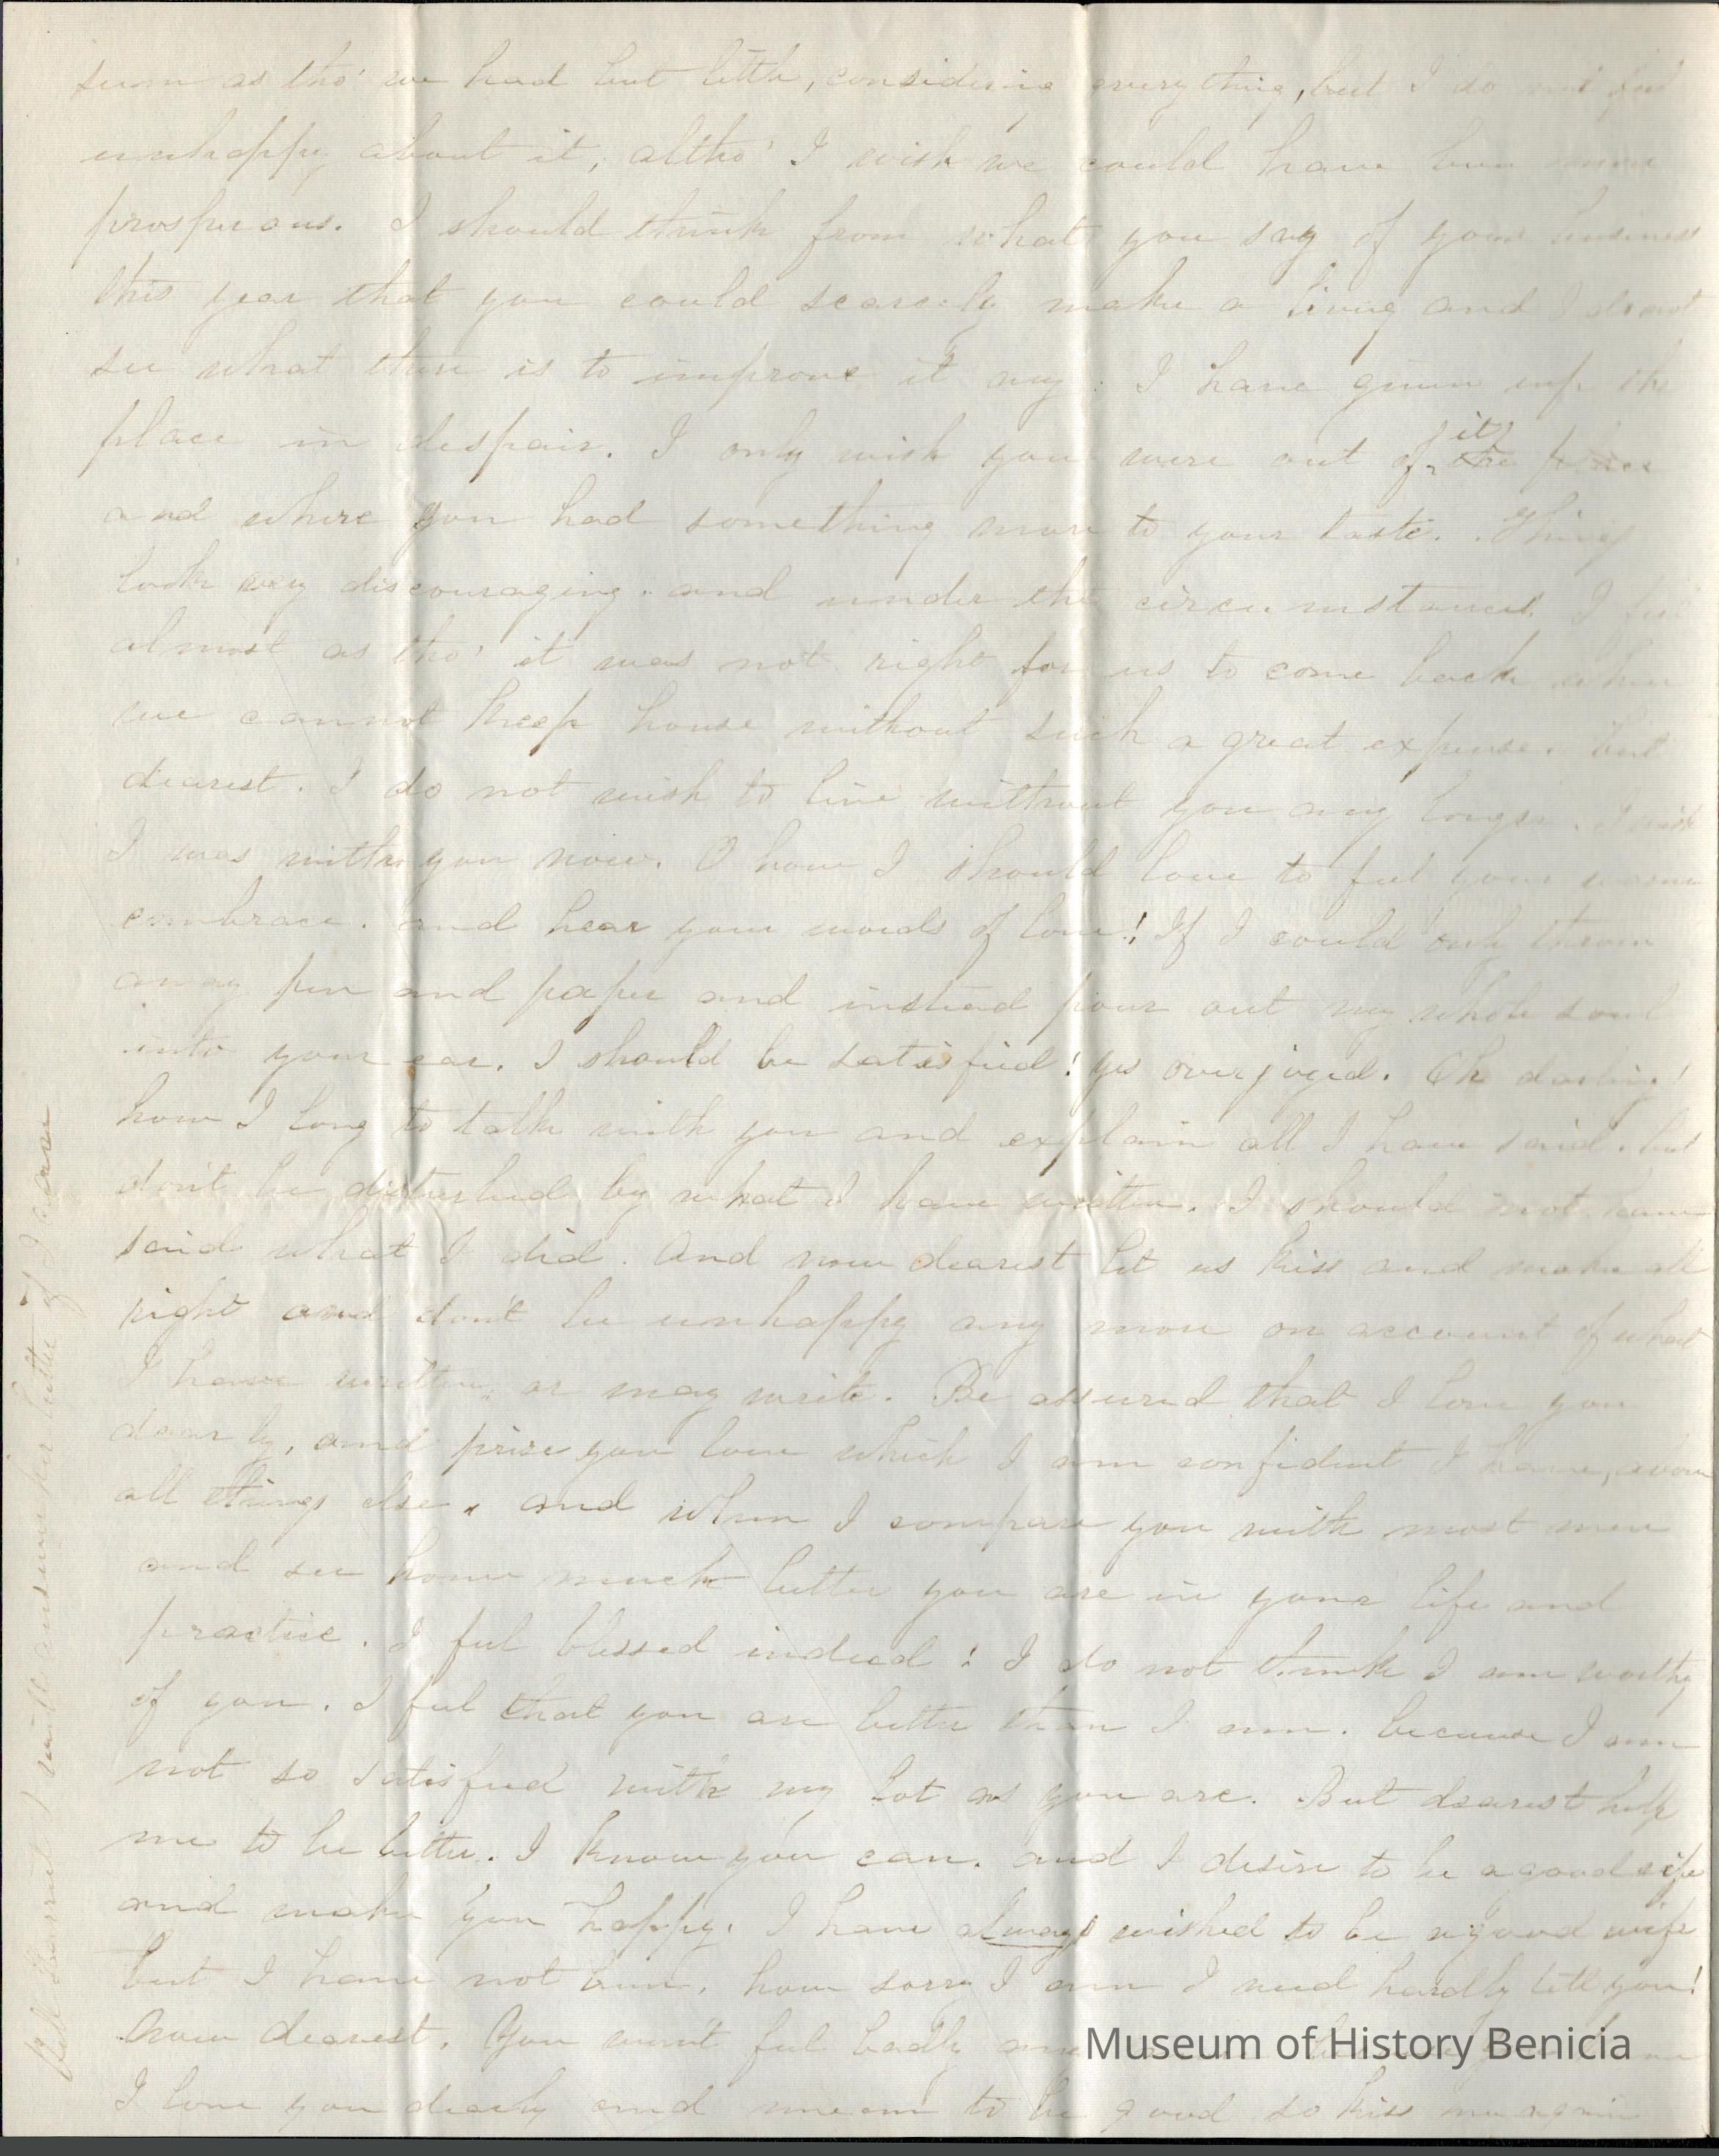 seem as tho' we had but little, considering everything, but I do not feel
unhappy about it, altho' I wish we could have been more
prosperous. I should think from what you say of your business
this year that you could scarcely make a living and I do not
see what there is to improve it any. I have given up the
place in despair. I only wish you were out of it the place
and where you had something more to your taste. Things
look very discouraging. and under the circumstances I feel
almost as tho' it was not right for us to come back when
we cannot keep house without such a great expense. but
dearest. I do not wish to live without you any longer. I wish
I was with you now. O how I should love to feel your warm
embrace. and hear your words of love! If I could only throw
away pen and paper and instead pour out my whole soul
into your ear. I should be satisfied! yes overjoyed. Oh darling!
how I long to talk with you and explain all I have said. but
don't be disturbed by what I have written. I should not have
said what I did. And now dearest let us kiss and make all
right and don't be unhappy any more on account of what
I have written, or may write. Be assured that I love you
dearly, and prize you love which I am confident I have, above
all things else, and when I compare you with most men
and see how much better you are in your life and
practice. I feel blessed indeed! I do not think I am worthy
of you. I feel that you are better than I am. because I am
not so satisfied with my lot as you are. But dearest help
me to be better. I know you can. and I desire to be a good wife
and make you happy. I have always wished to be a good wife
but I have not been. how sorry I am I need hardly tell you!
Now dearest. You won't feel badly any
I love you dearly and mean to be good so kiss me again
I want to answer her letter if I can
Museum of History Benicia